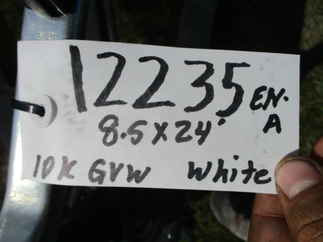 12235 EN.
A
8.5 x 24'
10K GVW White